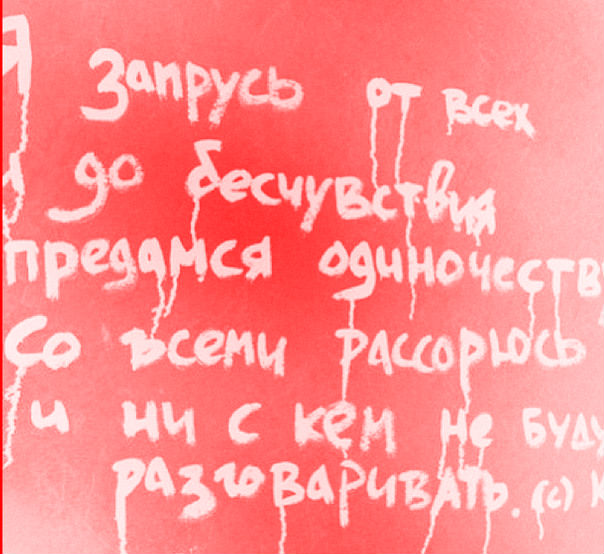 Я запрусь от всех
и до бесчувствия
предамся одиночеств
Со всеми рассорюсь
и ни с кем не буду
разговаривать. (с)